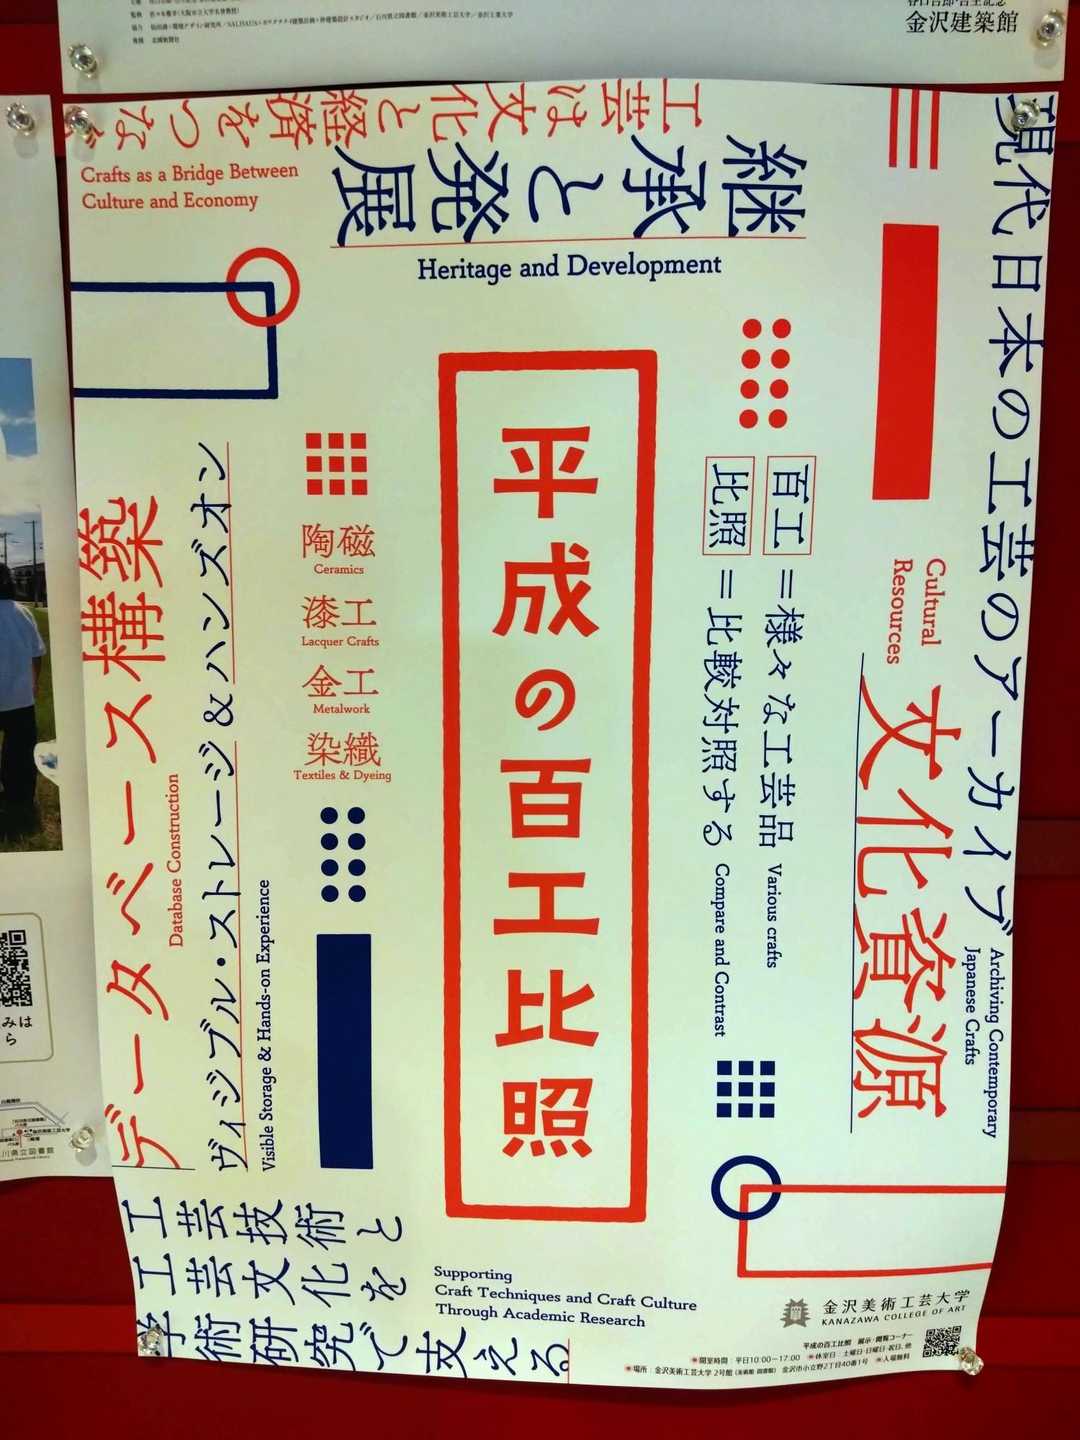 金沢建築館
工芸は文化と経済をつなぐ
Crafts as a Bridge Between
Culture and Economy
継承と発展
Heritage and Development
現代日本の工芸のアーカイブ
Archiving Contemporary
Japanese Crafts
Cultural
Resources
文化資源
百工
=様々な工芸品
Various crafts
比照
=比較対照する
Compare and Contrast
平成の百工比照
陶磁
Ceramics
漆工
Lacquer Crafts
金工
Metalwork
染織
Textiles & Dyeing
データベース構築
Database Construction
ヴィジブル・ストレージ & ハンズオン
Visible Storage & Hands-on Experience
工芸技術と
工芸文化を
学術研究で支える
Supporting
Craft Techniques and Craft Culture
Through Academic Research
金沢美術工芸大学
KANAZAWA COLLEGE OF ART
平成の百工比照 展示・閲覧コーナー
開室時間：平日10:00〜17:00 休室日：土曜日・日曜日・祝日、他 入場無料
場所：金沢美術工芸大学 2号館（美術館 図書館） 金沢市小立野2丁目40番1号